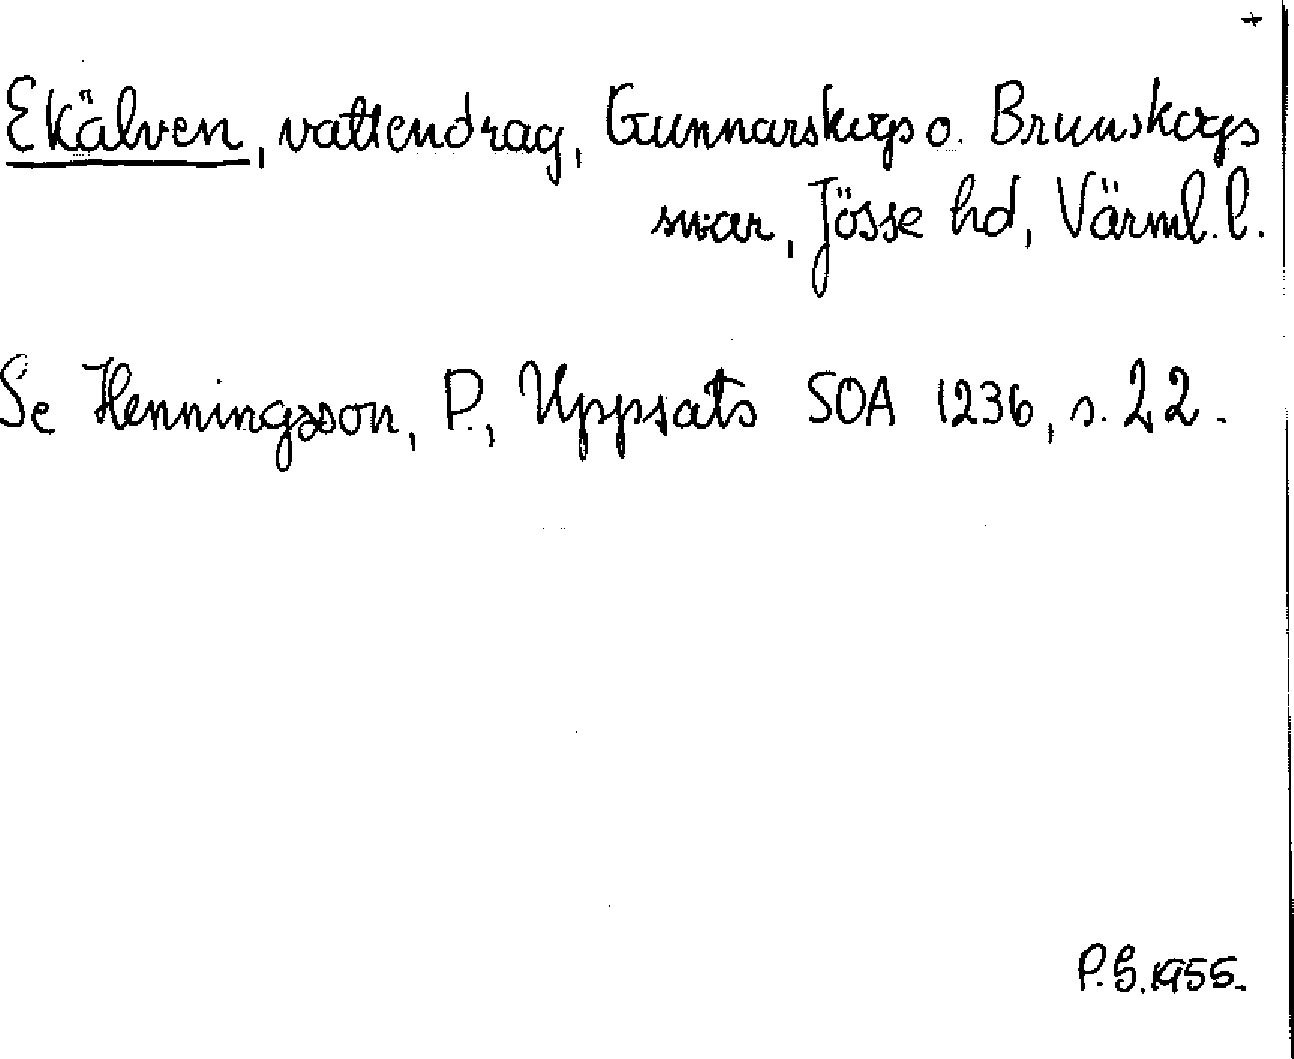 +
Ekälven, vattendrag, Gunnarskogs o. Brunskogs
snar, Jösse hd, Värml. l.
Se Henningsson, P., Uppsats SOA 1236, s. 22.
P.G. 1955.